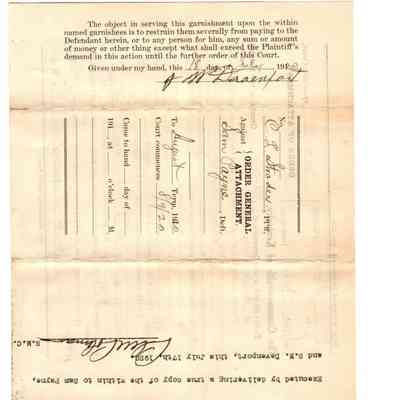 The object in serving this garnishment upon the within
named garnishees is to restrain them severally from paying to the
Defendant herein, or to any person for him, any sum or amount
of money or other thing except what shall exceed the Plaintiff's
demand in this action until the further order of this Court.
Given under my hand, this 18 day of July 1920
Against
ORDER GENERAL
ATTACHMENT.
Sam Payne, Deft.
To August Term, 1920
Court commences 8/9/20
Come to hand day of
191 at o'clock M
Executed by delivering a true copy of the within to Sam Payne,
and D.M. Devenport, this July 17th, 1920.
S.M.C.